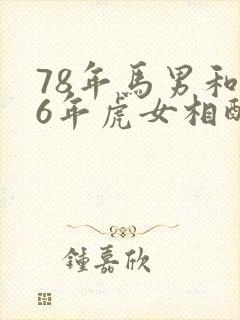 78年馬男和
6年虎女相配
鍾嘉欣